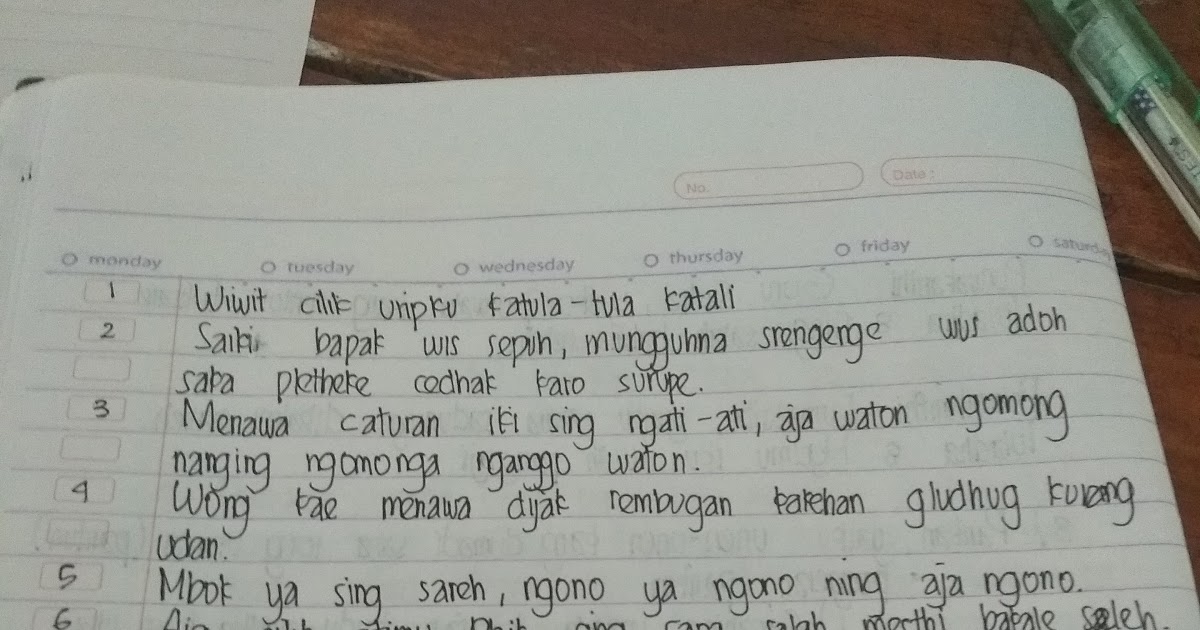 No.
Date :
monday tuesday wednesday thursday friday saturd
1 Wiwit cilik uripku katula-tula katali
2 Saiki bapak wis sepuh, mungguhna srengenge wus adoh
saka pletheke cedhak karo surupe.
3 Menawa caturan iki sing ngati-ati, aja waton ngomong
nanging ngomonga nganggo waton.
4 Wong kae menawa dijak rembugan kakehan gludhug kurang
udan.
5 Mbok ya sing sareh, ngono ya ngono ning aja ngono.
6 salah bakale saleh.